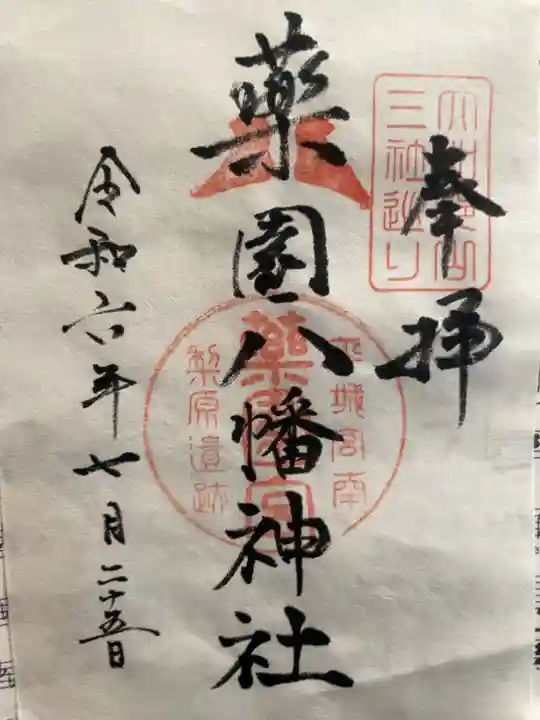 奉拝
三社巡り
薬園八幡神社
平城宮南
梨原遺跡
令和六年七月二十五日